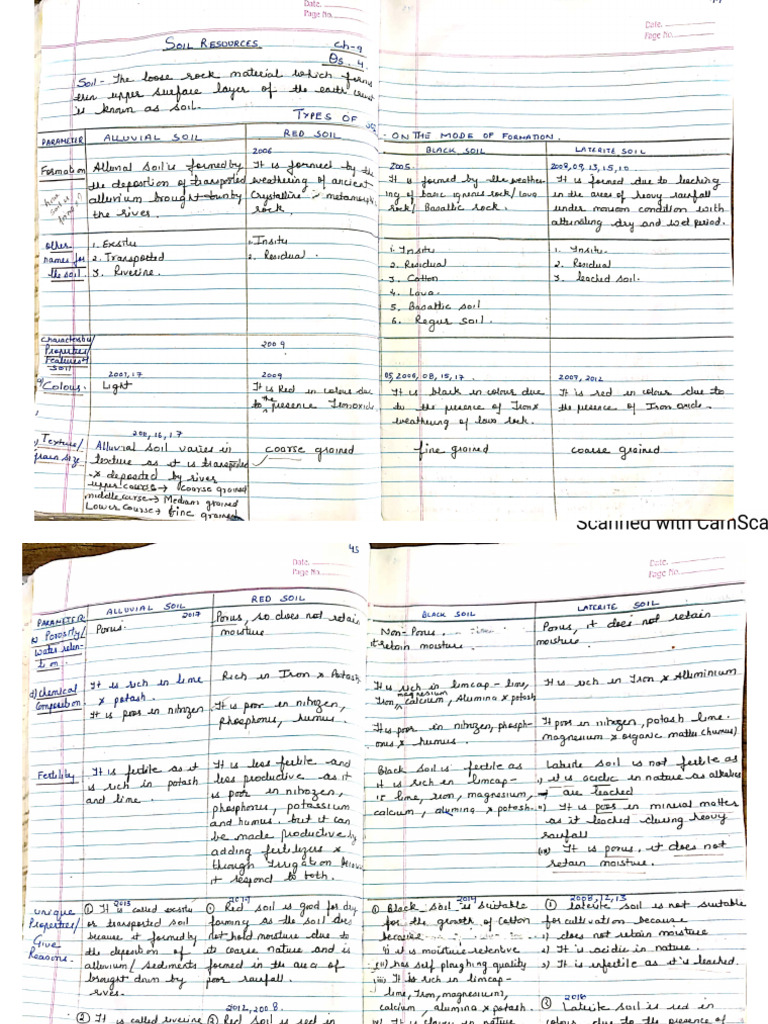 Date.
Page No.
SOIL RESOURCES
Ch-9
Qs. 4.
Soil - The loose rock material which forms
thin upper surface layer of the earth crust
is known as soil.
TYPES OF
PARAMETER
ALLUVIAL SOIL
RED SOIL
Formation
Alluvial soil is formed by
the depostion of transported
alluvium brought by
the river.
2006
It is formed by the
weathering of ancient
crystalline metamorphic
rock.
Other
names for
the soil.
1. Exsitu
2. Transported
3. Riverine.
1. Insitu
2. Residual.
Characteristics/
Properties/
Features of
Soil
2009
a) Colours.
2007, 17
Light
2009
It is Red in colour due
to the presence Iron oxide.
Texture/
grain size.
Alluvial soil varies in
texture as it is transported
x deposited by river
upper course → coarse grained
middle curse → Medium grained
Lower course → fine grained
coarse grained
Date.
Page No.
ON THE MODE OF FORMATION.
BLACK SOIL
LATERITE SOIL
2005
It is formed by the weather-
ing of basic igneous rock/ lava
rock/ Basaltic rock.
2008, 09, 13, 15, 10
It is formed due to leaching
in the areas of heavy rainfall
under monson condition with
alternating dry and wet period.
1. Insitu
2. Residual
3. Cotton
4. Lava.
5. Basaltic soil
6. Regur soil.
1. Insitu.
2. Residual
3. leached soil.
05, 2006, 08, 15, 17.
It is black in colour due
to the presence of Iron x
weathering of lava rock.
2007, 2012
It is red in colour due to
the presence of Iron oxide.
fine grained
coarse grained
Scanned with CamSca
45
Date.
Page No.
PARAMETER
ALLUVIAL SOIL
RED SOIL
Porosity/
Water reten-
tion.
2017
Porus.
Porus, so does not retain
moisture
d) Chemical
Composition
It is rich in lime
x potash.
It is poor in nitrogen
Rich in Iron x Potash
It is poor in nitrogen,
phosphorus, humus.
Fertility
It is fertile as it
is rich in potash
and lime.
It is less fertile and
less productive as it
is poor in nitrogen,
phosphorus, potassium
and humus. but it can
be made productive by
adding fertilizers x
through Irrigation
it respond to both.
Unique
Properties/
Give
Reasons.
2013
① It is called exsitu
or transported soil
because it formed by
the deposition of
alluvium/ sediments
brought down by
rives.
2014
① Red soil is good for dry
farming as the soil does
not hold moisture due to
its coarse nature and is
formed in the area of
poor rainfall.
② It is called riverine
2012, 2008.
② Red soil is red in
Date.
Page No.
BLACK SOIL
LATERITE SOIL
Non-Porus.
It retain moisture.
Porus, it does not retain
moisture.
It is rich in limcap - lime,
Iron, magnesium calcium, Alumina x potash
It is poor in nitrogen, phosph-
orus x humus.
It is rich in Iron x Alluminium
It poor in nitrogen, potash lime.
magnesium x organic matter (humus)
Black soil is fertile as
it is rich in limcap -
lime, Iron, magnesium,
calcium, alumina x potash.
Laterite soil is not fertile as
i) it is acidic in nature as alkalies
are leached
ii) It is poor in mineral matter
as it leached during heavy
rainfall
(iii) It is porus, it does not
retain moisture.
2014
① Black soil is suitable
for the growth of cotton
because
i) it is moisture-retentive
(ii) has self ploughing quality
(iii) It is rich in limcap -
lime, Iron, magnesium,
calcium, alumina x potash.
It is clayey in nature
2008, 12, 13
① laterite soil is not suitable
for cultivation because
1) does not retain moisture
2) It is acidic in nature.
3) It is infertile as it's leached.
2016
② Laterite soil is red in
colour due to the presence of